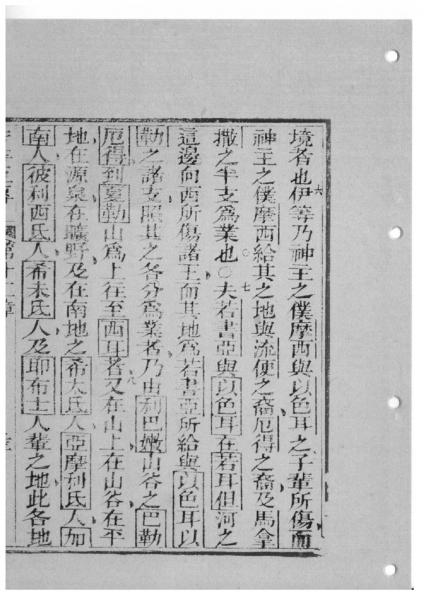 境者也六伊等乃神主之僕摩西與以色耳之子輩所傷而
神主之僕摩西給其之地與流便之裔厄得之裔及馬拿
撒之半支爲業也○七夫若書亞與以色耳在若耳但河之
這邊向西所傷諸王而其地爲若書亞所給與以色耳以
勒之諸支照其之各分爲業者乃由利巴嫩山谷之巴勒
厄得到夏勒山爲上往至西耳者八又在山上在山谷在平
地在源泉在曠野及在南地之希大氏人亞摩利氏人加
南人彼利西氏人希未氏人及耶布士人輩之地此各地
第十二章